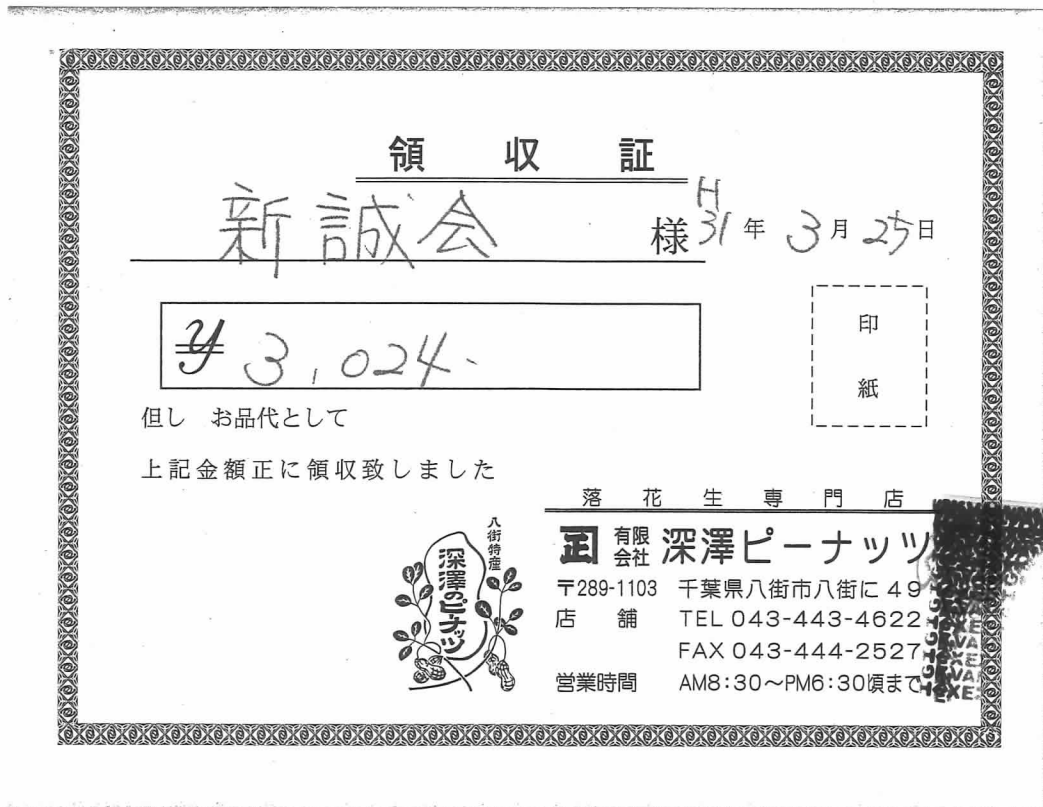 領収証
新誠会 様 H31年3月25日
¥3,024.
印
紙
但し お品代として
上記金額正に領収致しました
落花生専門店
八街特産
深澤のピーナッツ
正 有限会社 深澤ピーナッツ
〒289-1103 千葉県八街市八街に49
店舗 TEL 043-443-4622
FAX 043-444-2527
営業時間 AM8:30〜PM6:30頃まで